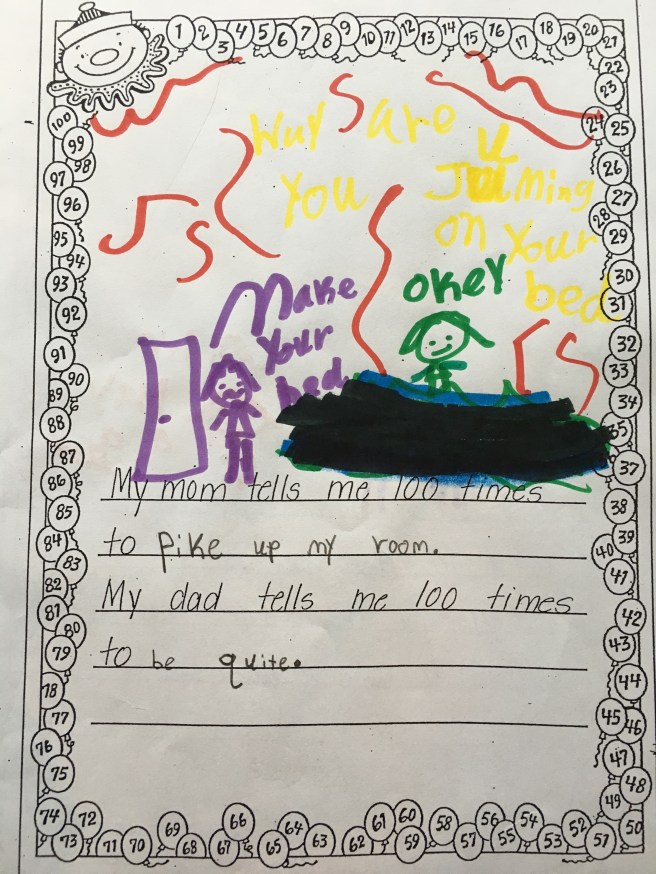 1 2 3 4 5 6 7 8 9 10 11 12 13 14 15 16 17 18 19 20 21
Wuy are
you Juming
on your
bed
okey
Make
your
bed
My mom tells me 100 times
to pike up my room.
My dad tells me 100 times
to be quite.
22
23
24 25
26
27
28
29
30
31
32
33
34
35
37
38
39
40
41
42
43
44
45 46
47
48
49
50
51 52 53 54 55 56 57 58 59 60 61 62 63 64 65 66 67 68 69 70 71 72 73 74
75
76
77
78
79
80
81
82
83
84
85
86
87
88
89
90
91
92
93
94
95
96
97
98
99
100